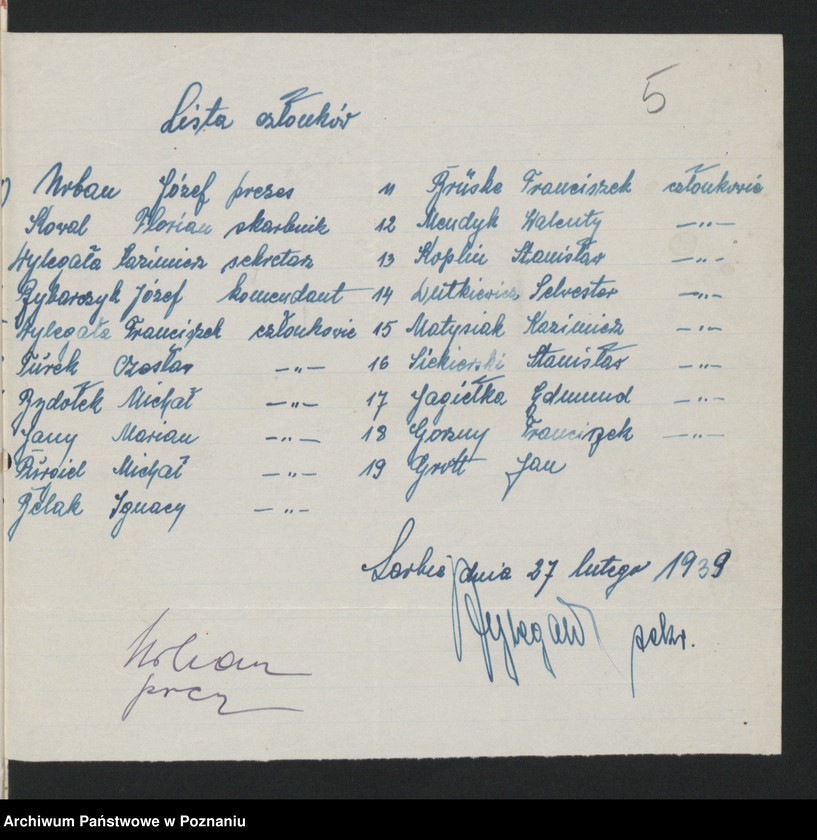 5
Lista członków
Urban Józef prezes
Kowal Florian skarbnik
Wylegała Kazimierz sekretarz
Rybarczyk Józef komendant
Wylegała Franciszek członkowie
Turek Czesław — „ —
Rydołek Michał — „ —
Jany Marian — „ —
Michał — „ —
Ignacy — „ —
11 Brüske Franciszek członkowie
12 Mendyk Walenty — „ —
13 Koplin Stanisław — „ —
14 Dutkiewicz Selvester — „ —
15 Matysiak Kazimierz — „ —
16 Siekierski Stanisław — „ —
17 Jagiełka Edmund — „ —
18 Gorzny Franciszek — „ —
19 Grott Jan
Sarbia dnia 27 lutego 1939
Wylegała sekr.
Urban
prez
Archiwum Państwowe w Poznaniu